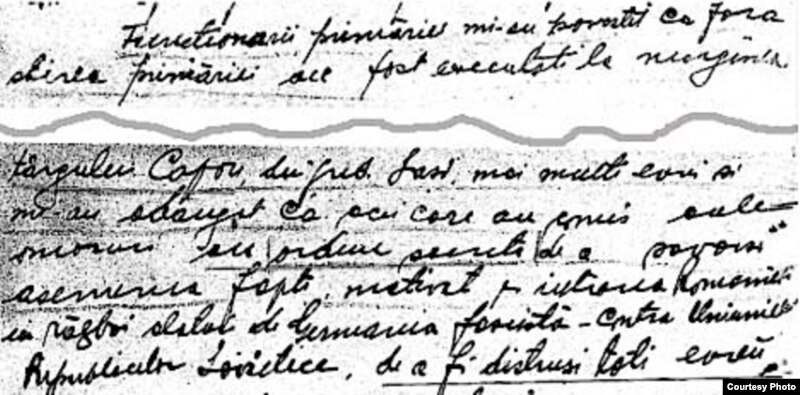 Funcționarii primăriei mi-au povestit că fără
știrea primăriei au fost executați la marginea
târgului din jud. Iași, mai mulți evrei și
mi-au adăugat că acei care au comis
omoruri au ordine secrete de a
asemenea fapte, motivat intrarea României
în război alături de Germania fascistă - contra Uniunei
Republicilor Sovietice, de a fi distruși toți evreii
Courtesy Photo